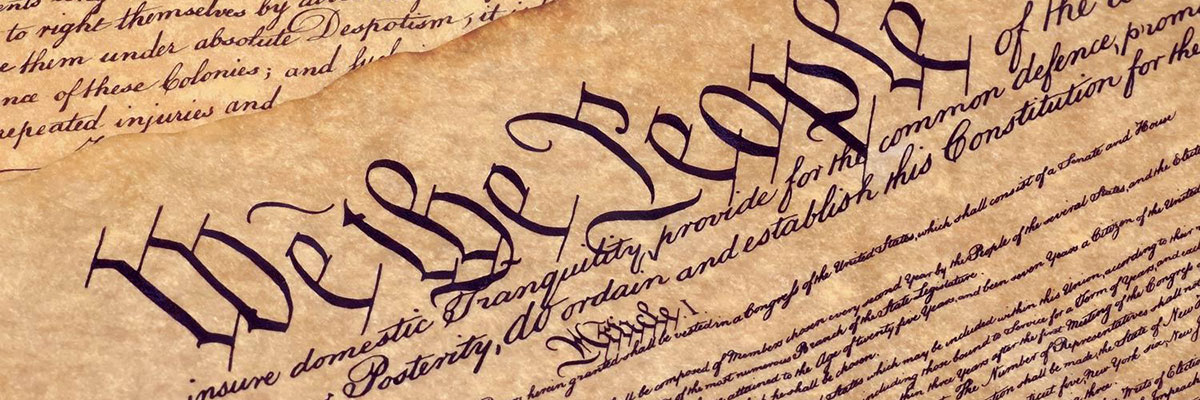 to right themselves by
them under absolute Despotism, it
of these Colonies; and
repeated injuries and
We the People of the
insure domestic Tranquility, provide for the common defence, promo
Posterity, do ordain and establish this Constitution for the
Article I
herein granted shall be vested in a Congress of the United States, which shall consist of a Senate and Hous
be composed of Members chosen every second Year by the People of the several States, and the Elect
of the most numerous Branch of the State Legislature.
attained to the Age of twenty five Years, and been seven Years a Citizen of the United
he shall be chosen.
States which may be included within this Union, according to their
including those bound to Service for a Term of Years, and
within three Years after the first Meeting of the Congress
The Number of Representatives shall
shall be made, the State of New
five, New York six, New
three.
Writs of Election
Impeach